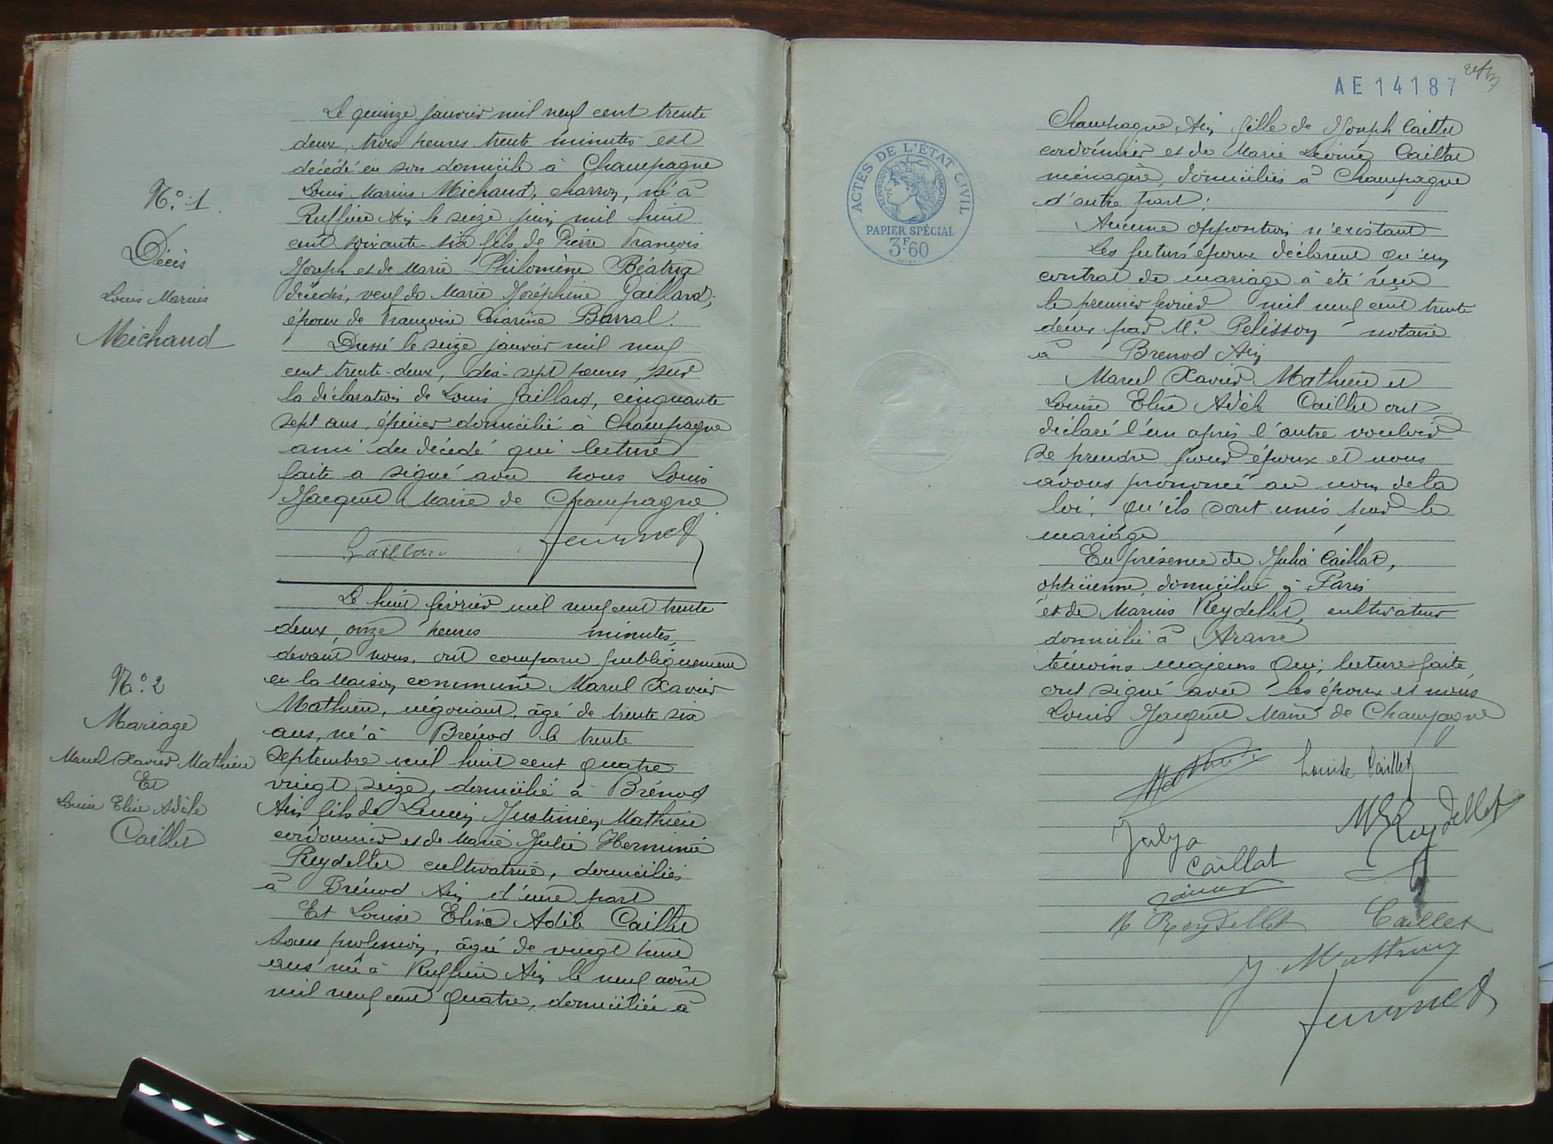 Le quinze janvier mil neuf cent trente
deux, trois heures trente minutes est
décédé en son domicile à Champagne
Louis Marius Michaud, charron, né à
Ruffieu Ain le seize juin mil huit
cent soixante-six fils de Pierre François
Joseph et de Marie Philomène Béatrix
décédés, veuf de Marie Joséphine Gaillard,
époux de Françoise Césarine Barral.
Dressé le seize janvier mil neuf
cent trente-deux, dix-sept heures, sur
la déclaration de Louis Gaillard, cinquante
sept ans, épicier domicilié à Champagne
ami du décédé qui lecture
faite a signé avec nous Louis
Jacquet Maire de Champagne
N.º 1
Décès
Louis Marius
Michaud
Le huit février mil neuf cent trente
deux, onze heures minutes,
devant nous, ont comparu publiquement
en la Maison commune Marcel Xavier
Mathieu, négociant, âgé de trente six
ans, né à Brénod le trente
septembre mil huit cent quatre
vingt seize, domicilié à Brénod
Ain fils de Lucien Justinien Mathieu
cordonnier et de Marie Julie Herminie
Reydellet cultivatrice, domiciliés
à Brénod Ain d'une part
Et Louise Elise Adèle Caillet
sans profession, âgée de vingt sept
ans née à Ruffieu Ain le neuf août
mil neuf cent quatre, domiciliée à
N.º 2
Mariage
Marcel Xavier Mathieu
Et
Louise Elise Adèle
Caillet
AE 14187
ACTES DE L'ÉTAT CIVIL
PAPIER SPÉCIAL
3F60
Champagne Ain fille de Joseph Caillet
cordonnier et de Marie Caillat
ménagère, domiciliés à Champagne
d'autre part;
Aucune opposition n'existant
Les futurs époux déclarent qu'un
contrat de mariage a été reçu
le premier février mil neuf cent trente
deux par Me Pélisson notaire
à Brenod Ain
Marcel Xavier Mathieu et
Louise Elise Adèle Caillet ont
déclaré l'un après l'autre vouloir
se prendre pour époux et nous
avons prononcé au nom de la
loi, qu'ils sont unis par le
mariage
En présence de Julia Caillat,
opticienne, domiciliée à Paris
et de Marius Reydellet, cultivateur
domicilié à Aranc
témoins majeurs Qui, lecture faite
ont signé avec les époux et nous
Louis Jacquet Maire de Champagne
Mathieu
Louise Caillet
Julia
Caillat
Reydellet
Reydellet
Caillet
J. Mathieu